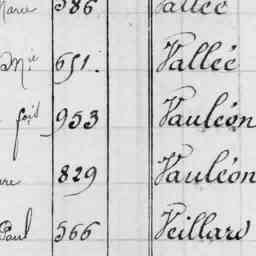 Marie 586 Vallée
Mie 651. Vallée
953 Vauléon
829 Vauléon
Paul 566 Veillard